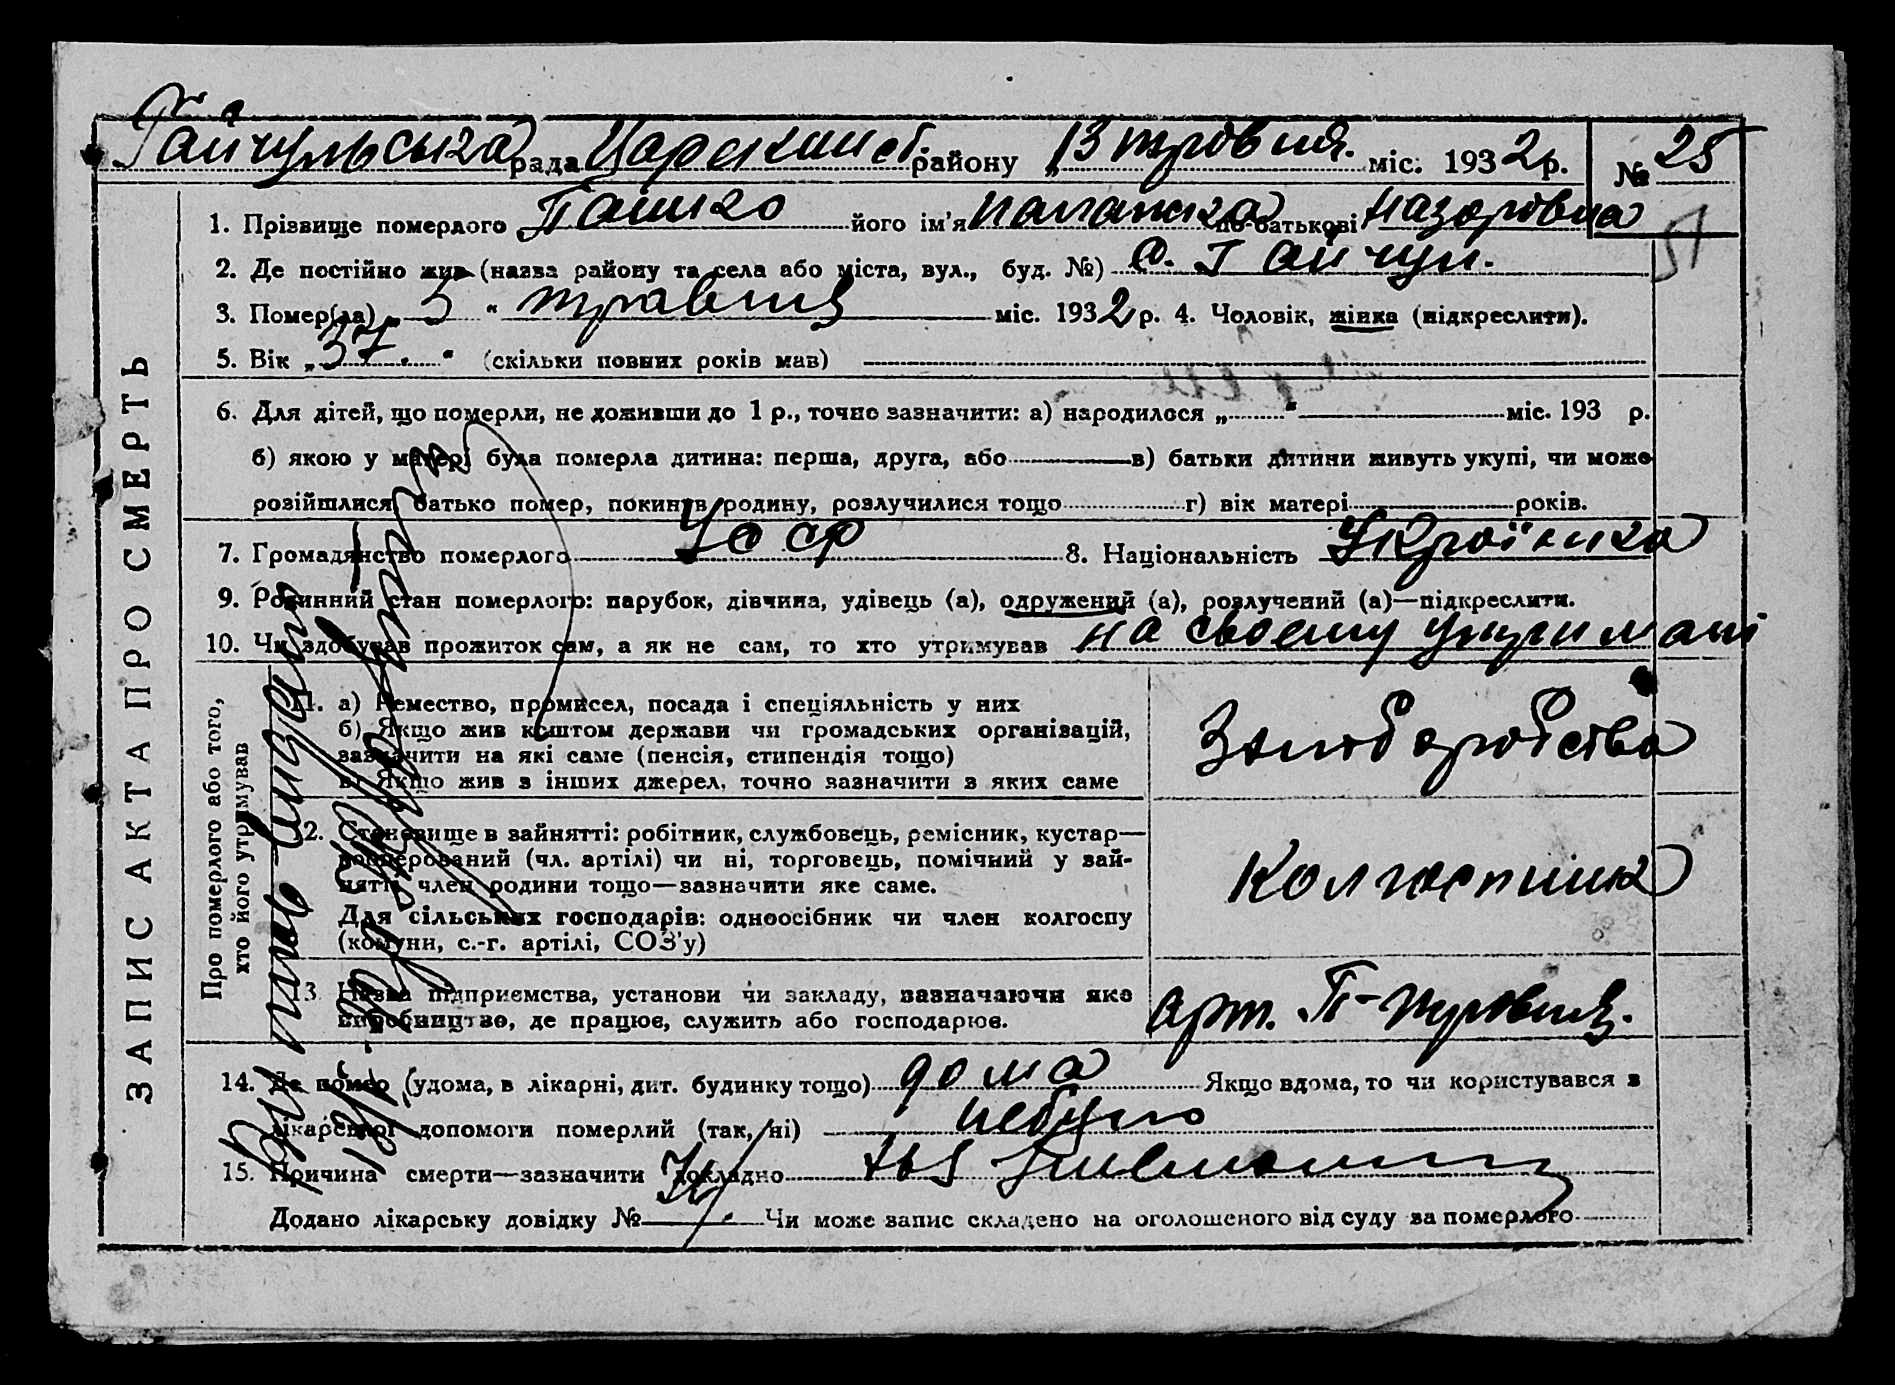 Гайчульська рада Царекинст. району 13 травня. міс. 1932 р. № 25
1. Прізвище померлого Пашко його ім'я Палажка по-батькові Назаровна
51
2. Де постійно жив (назва району та села або міста, вул., буд. №) с. Гайчул.
3. Помер(ла) „ 5 " травня міс. 1932 р. 4. Чоловік, жінка (підкреслити).
5. Вік „ 37. " (скільки повних років мав)
6. Для дітей, що померли, не доживши до 1 р., точно зазначити: а) народилося „ " міс. 193 р.
б) якою у матері була померла дитина: перша, друга, або в) батьки дитини живуть укупі, чи може
розійшлися, батько помер, покинув родину, розлучилися тощо г) вік матері років.
7. Громадянство померлого УССР 8. Національність Українка
9. Родинний стан померлого: парубок, дівчина, удівець (а), одружений (а), розлучений (а)—підкреслити.
10. Чи здобував прожиток сам, а як не сам, то хто утримував на своему утримані
ЗАПИС АКТА ПРО СМЕРТЬ
Про померлого або того,
хто його утримував
11. а) Ремество, промисел, посада і спеціяльність у них
б) Якщо жив коштом держави чи громадських організацій,
зазначити на які саме (пенсія, стипендія тощо)
в) Якщо жив з інших джерел, точно зазначити з яких саме
Хлиборобства
12. Становище в зайнятті: робітник, службовець, ремісник, кустар—
кооперований (чл. артілі) чи ні, торговець, помічний у зай-
нятті член родини тощо—зазначити яке саме.
Для сільських господарів: одноосібник чи член колгоспу
(комуни, с.-г. артілі, СОЗ'у)
Колгоспниця
13. Назва підприємства, установи чи закладу, зазначаючи яке
виробництво, де працює, служить або господарює.
арт. П-травня.
14. Де помер (удома, в лікарні, дит. будинку тощо) дома Якщо вдома, то чи користувався з
лікарської допомоги померлий (так, ні) небуло
15. Причина смерти—зазначити докладно
Додано лікарську довідку № Чи може запис складено на оголошеного від суду за померлого